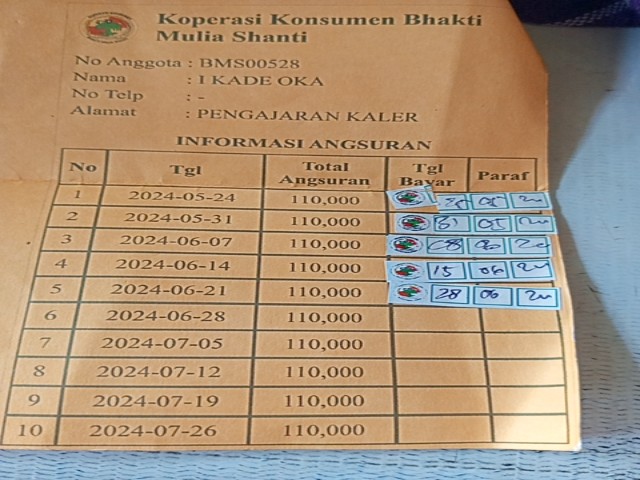 Koperasi Konsumen Bhakti
Mulia Shanti
No Anggota : BMS00528
Nama : I KADE OKA
No Telp : -
Alamat : PENGAJARAN KALER
INFORMASI ANGSURAN
No Tgl Total Angsuran Tgl Bayar Paraf
1 2024-05-24 110,000 05
2 2024-05-31 110,000 31 05
3 2024-06-07 110,000 06
4 2024-06-14 110,000 15 06
5 2024-06-21 110,000 28 06
6 2024-06-28 110,000
7 2024-07-05 110,000
8 2024-07-12 110,000
9 2024-07-19 110,000
10 2024-07-26 110,000